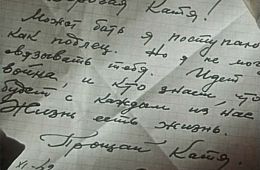 Катя!
Может быть я поступаю
как подлец. Но я не могу
вдзывать тебя. Идет
война, и кто знает, что
будет с каждом из, нас
Жизнь есть жизнь.
Прощай Катя.